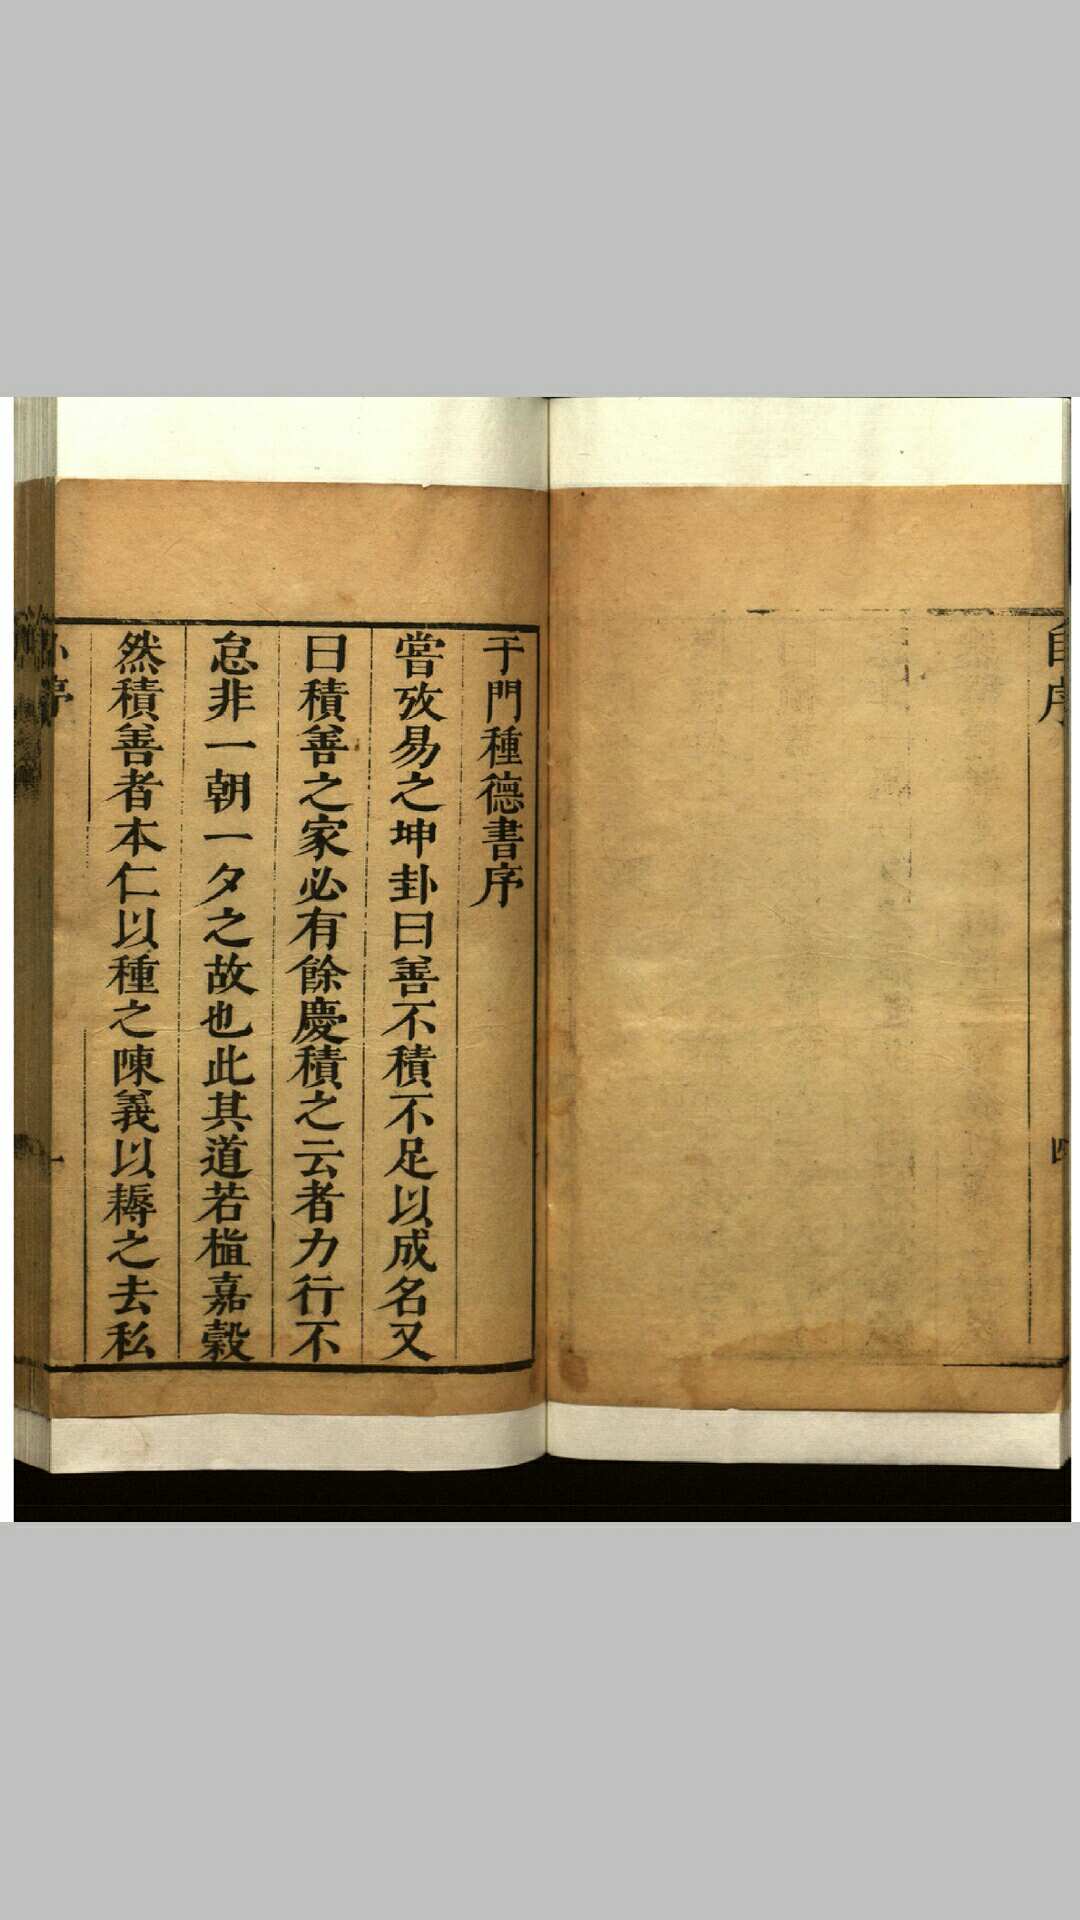 自序
四
于門種德書序
嘗攷易之坤卦曰善不積不足以成名又
曰積善之家必有餘慶積之云者力行不
怠非一朝一夕之故也此其道若植嘉穀
然積善者本仁以種之陳義以耨之去私
序
一